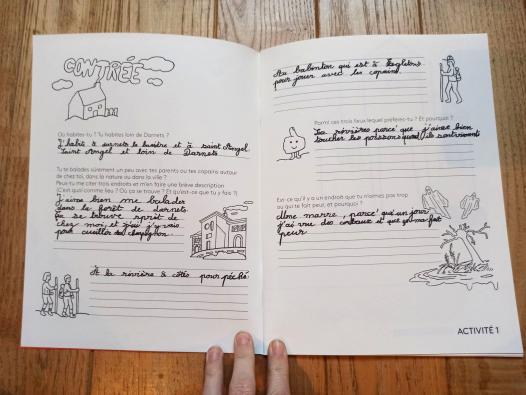 CONTRÉE
Où habites-tu ? Tu habites loin de Darnets ?
J'habit à surnets la luzière et à saint Angel
Saint Angel et loin de Darnets
Tu te balades sûrement un peu avec tes parents ou tes copains autour
de chez toi, dans la nature ou dans la ville ?
Peux-tu me citer trois endroits et m'en faire une brève description
(C'est quoi comme lieu ? Où ça se trouve ? Et qu'est-ce que tu y fais ?)
J'aime bien me balader
dans le forêt de darnets.
Sa se trouve
chez moi, et j'y vais
pour cueillir des champignon.
À la rivière à côtés pour péché
Au babinton qui est à Egletons
pour jouer avec les copains.
Parmi ces trois lieux lequel préfères-tu ? Et pourquoi ?
La rivières parce que j'aime bien
toucher les poissons quand ils sont vivants
Est-ce qu'il y a un endroit que tu n'aimes pas trop
ou qui te fait peur, et pourquoi ?
Une marre, parce qu'un jour
j'ai vu des corbeaux et que ça ma fait
peur
ACTIVITÉ 1